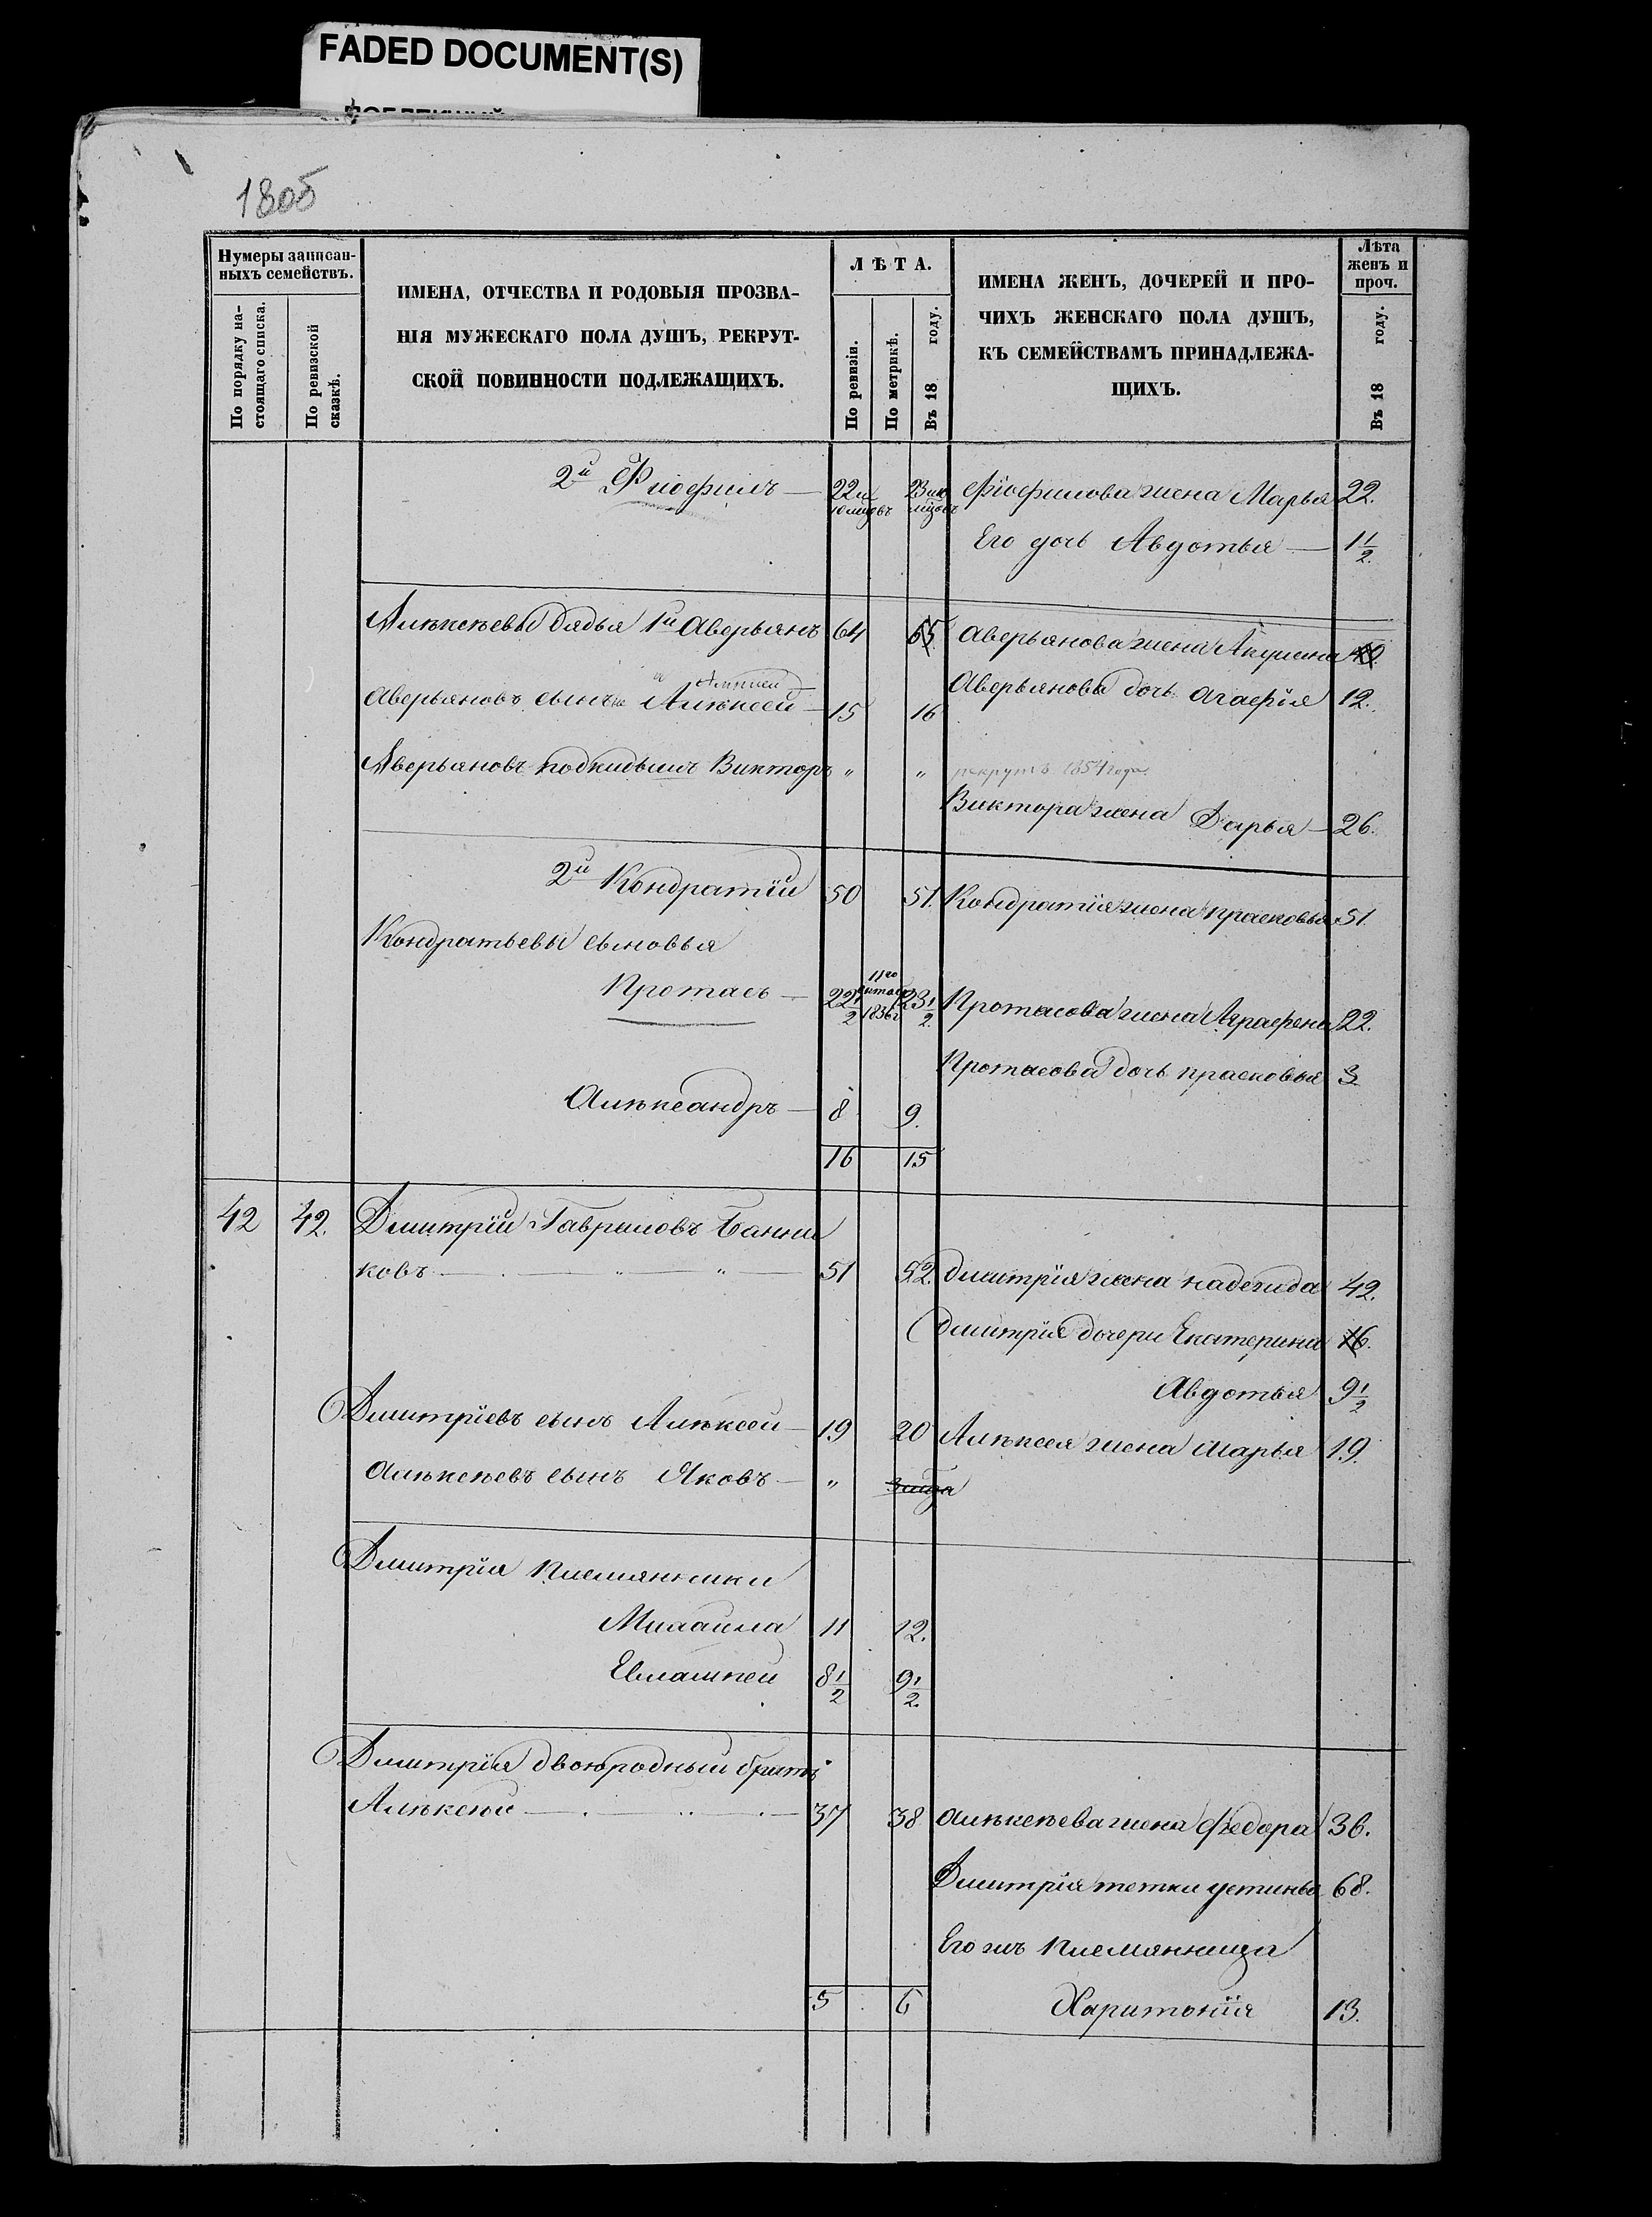 FADED DOCUMENT(S)
180б
Нумеры записан-
ныхъ семействъ.
По порядку на-
стоящаго списка.
По ревизской
сказкѣ.
ИМЕНА, ОТЧЕСТВА И РОДОВЫЯ ПРОЗВА-
НІЯ МУЖЕСКАГО ПОЛА ДУШЪ, РЕКРУТ-
СКОЙ ПОВИННОСТИ ПОДЛЕЖАЩИХЪ.
ЛѢТА.
По ревизіи.
По метрикѣ.
Въ 18 году.
ИМЕНА ЖЕНЪ, ДОЧЕРЕЙ И ПРО-
ЧИХЪ ЖЕНСКАГО ПОЛА ДУШЪ,
КЪ СЕМЕЙСТВАМЪ ПРИНАДЛЕЖА-
ЩИХЪ.
Лѣта
женъ и
проч.
Въ 18 году.
2й Фиофилъ — 22 и 23 Фіофилова жена Марья 22.
Его дочь Авдотья — 1 1/2.
Алѣксѣевы дядья 1й Аверьянъ 64 65 Аверьянова жена Акулина
Аверьянова дочь Агафія 12.
Аверьяновъ сынъ Алѣксей — 15 16
Аверьяновъ подкидышъ Викторъ " " рекрутъ 1854 года.
Виктора жена Дарья — 26.
2й Кондратій 50 51. Кондратія жена прасковья 51
Кондратьевы сыновья
Протасъ — 22 1/2 11го 1836 г 23 1/2. Протасова жена Аграфена 22.
Протасова дочь прасковья 3
Алѣксандръ — 8 9.
16 15
42 42. Дмитрій Гавриловъ Банни
ковъ — " — " — 51 52. Дмитрія жена надежда 42.
Дмитрія дочери Екатерина 16.
Авдотья 9 1/2
Дмитріевъ сынъ Алѣксей — 19 20 Алѣксея жена марья 19.
Алѣксѣевъ сынъ Яковъ — "
Дмитрія племянники
Михаила 11 12.
Евлампей 8 1/2 9 1/2.
Дмитрія двоюродный братъ
Алѣксѣй — 37 38 Алѣксѣева жена Федора 36.
Дмитрія тетка устинья 68.
Его жъ племянница
5 6 Харитонія 13.